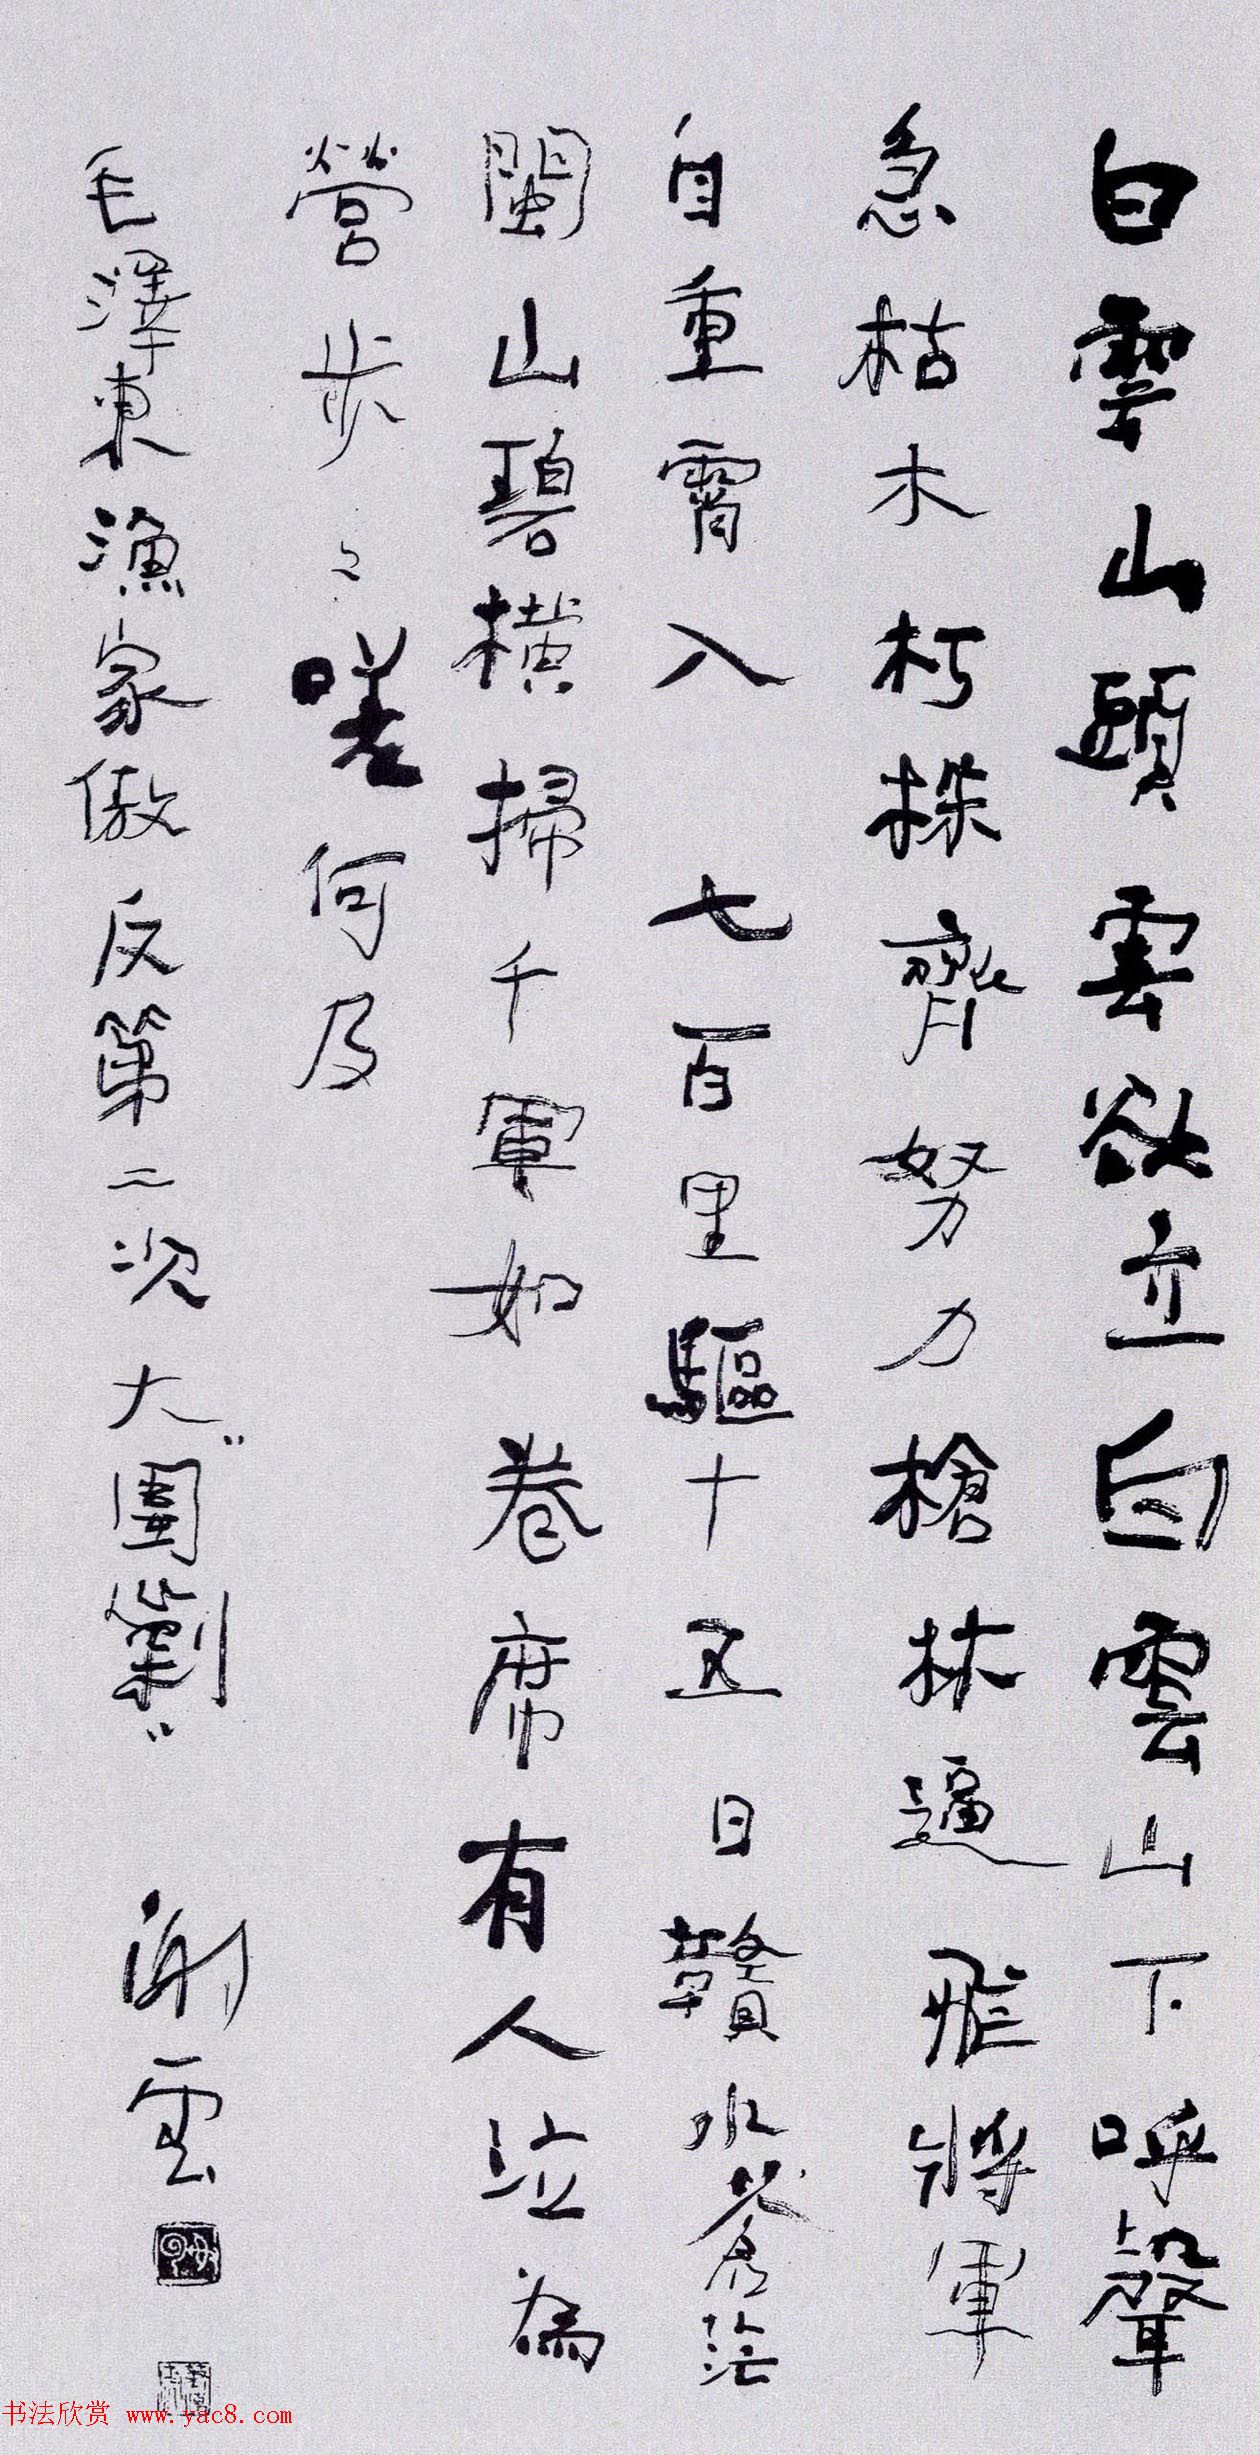 白雲山頭雲欲立白雲山下呼聲
急枯木朽株齊努力槍林逼飛將軍
自重霄入 七百里驅十五日贛水蒼茫
閩山碧橫掃千軍如卷席有人泣為
營步〻嗟何及
毛澤東漁家傲反第二次大"圍剿" 謝雲
书法欣赏 www.yac8.com